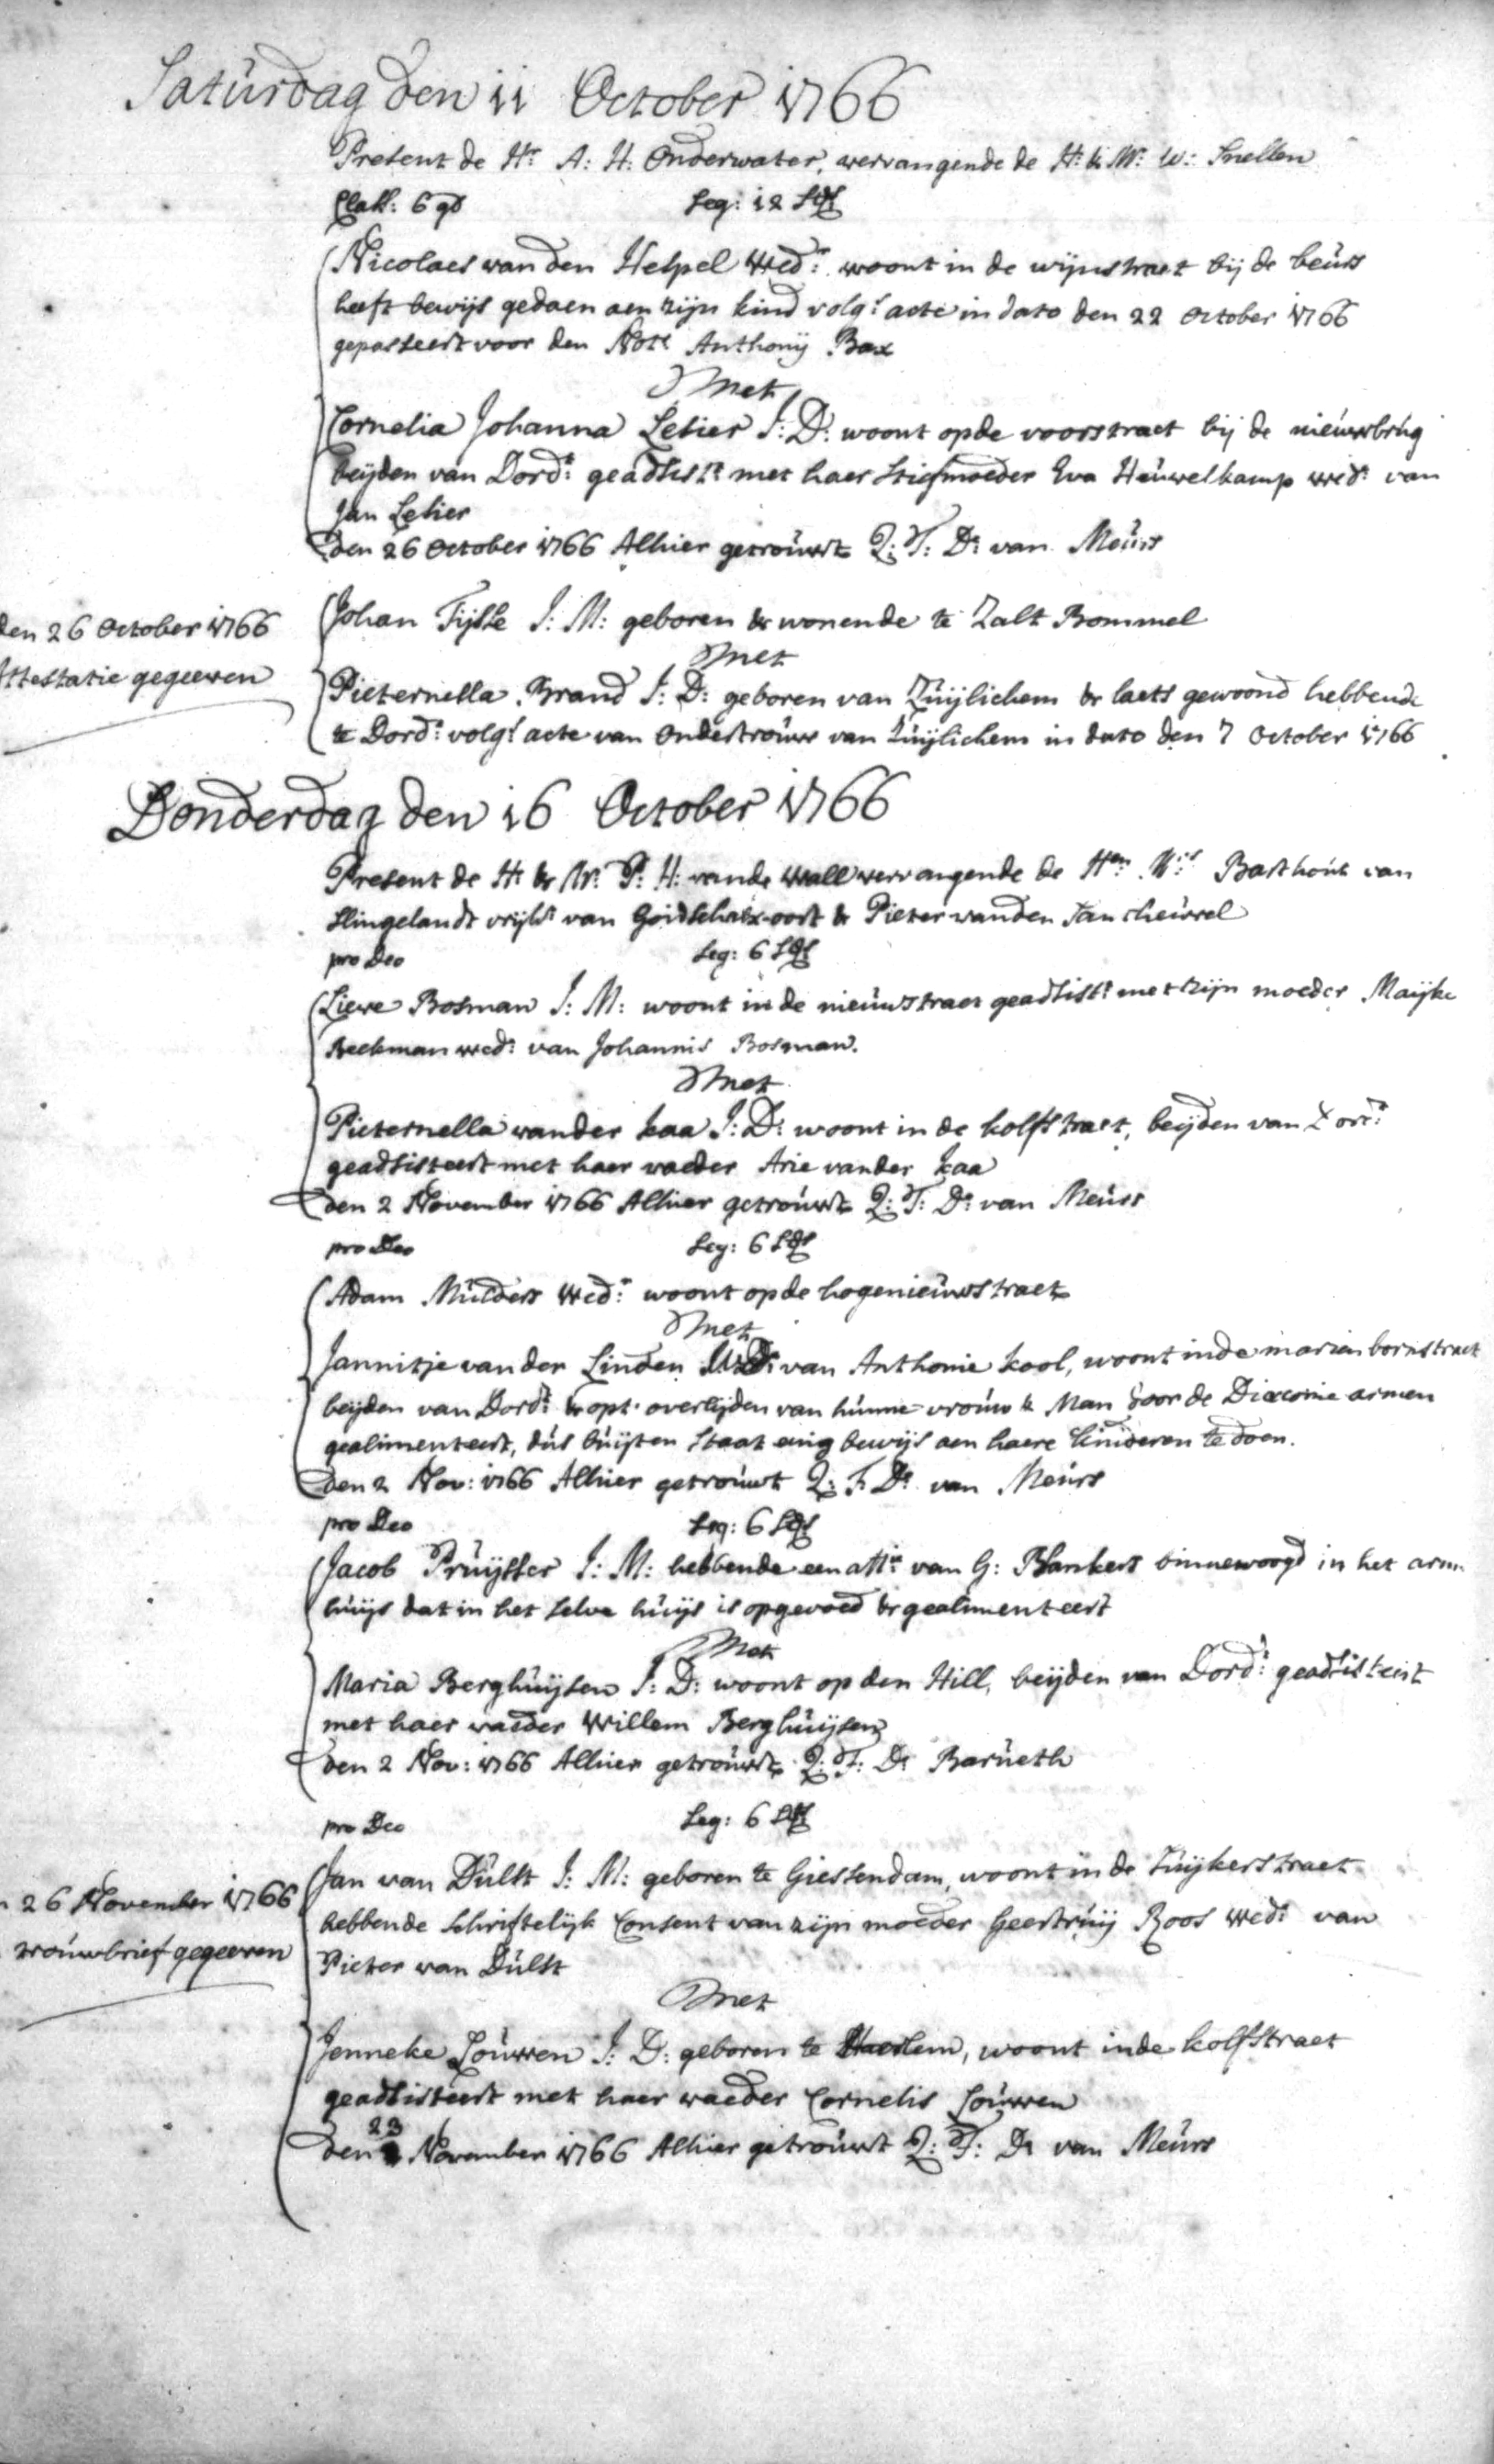 Saturdag den 11 October 1766
Present de Hr. A: H: Onderwater, vervangende de H: & Mr: W: Snellen
Class: 6 gd Leg: 12 St
Nicolaes van den Hespel Wedr. woont in de wijnstraet bij de beurs
heeft bewijs gedaen aen zijn kind volgs. acte in dato den 22 October 1766
gepasseert voor den Nots Anthonij Bax
Met
Cornelia Johanna Letier J: D: woont op de voorstraet bij de nieuwbrug
beijden van Dordt. geadsistt met haer stiefmoeder Eva Heuwelkamp wede. van
Jan Letier
den 26 October 1766 Alhier getrouwt Q: T: Ds van Meurs
den 26 October 1766
Attestatie gegeeven
Johan Tijsse J: M: geboren & wonende te Zalt Bommel
Met
Pieternella Brand J: D: geboren van Zuijlichem & laets gewoond hebbende
te Dordt. volgs. acte van ondertrouw van Zuijlichem in dato den 7 October 1766
Donderdag den 16 October 1766
Present de H: & Mr. P: H: vande Wall vervangende de Hren. Mrs. Barthout van
Slingelandt vrijhr van Goidschalxoort & Pieter vanden Santheuvel
pro Deo Leg: 6 St
Lieve Bosman J: M: woont in de nieuwstraet geadsistt met zijn moeder Maijke
Beekman wede. van Johannis Bosman.
Met
Pieternella vander kaa J: D: woont in de kolfstraet, beijden van Dordt.
geadsisteert met haer vaeder Arie vander kaa
den 2 November 1766 Alhier getrouwt Q: T: Ds van Meurs
pro Deo Leg: 6 St
Adam Mulders Wedr. woont op de hogenieuwstraet
Met
Jannitje van der Linden Wede. van Anthonie kool, woont inde marienbornstraet
beijden van Dordt. & opt overlijden van hunne vrouw & Man door de Diaconie armen
gealimenteert, dus buijten staat enig bewijs aen haere kinderen te doen.
den 2 Nov: 1766 Alhier getrouwt Q: T: Ds van Meurs
pro Deo Leg: 6 St
Jacob Pruijsser J: M: hebbende een attie van G: Blankert binnevoogd in het arm
huijs dat in het selve huijs is opgevoed & gealimenteert
Met
Maria Berghuijsen J: D: woont op den Hill, beijden van Dordt. geadsisteert
met haer vaeder Willem Berghuijsen
den 2 Nov: 1766 Alhier getrouwt Q: T: Ds Barueth
pro Deo Leg: 6 St
26 November 1766
trouwbrief gegeeven
Jan van Dulst J: M: geboren te Giessendam, woont in de Suijkerstraet
hebbende schriftelijk Consent van zijn moeder Geertruij Roos Wede. van
Pieter van Dulst
Met
Jenneke Louwen J: D: geboren te Haerlem, woont inde kolfstraet
geadsisteert met haer vaeder Cornelis Louwen
den 23 November 1766 Alhier getrouwt Q: T: Ds van Meurs